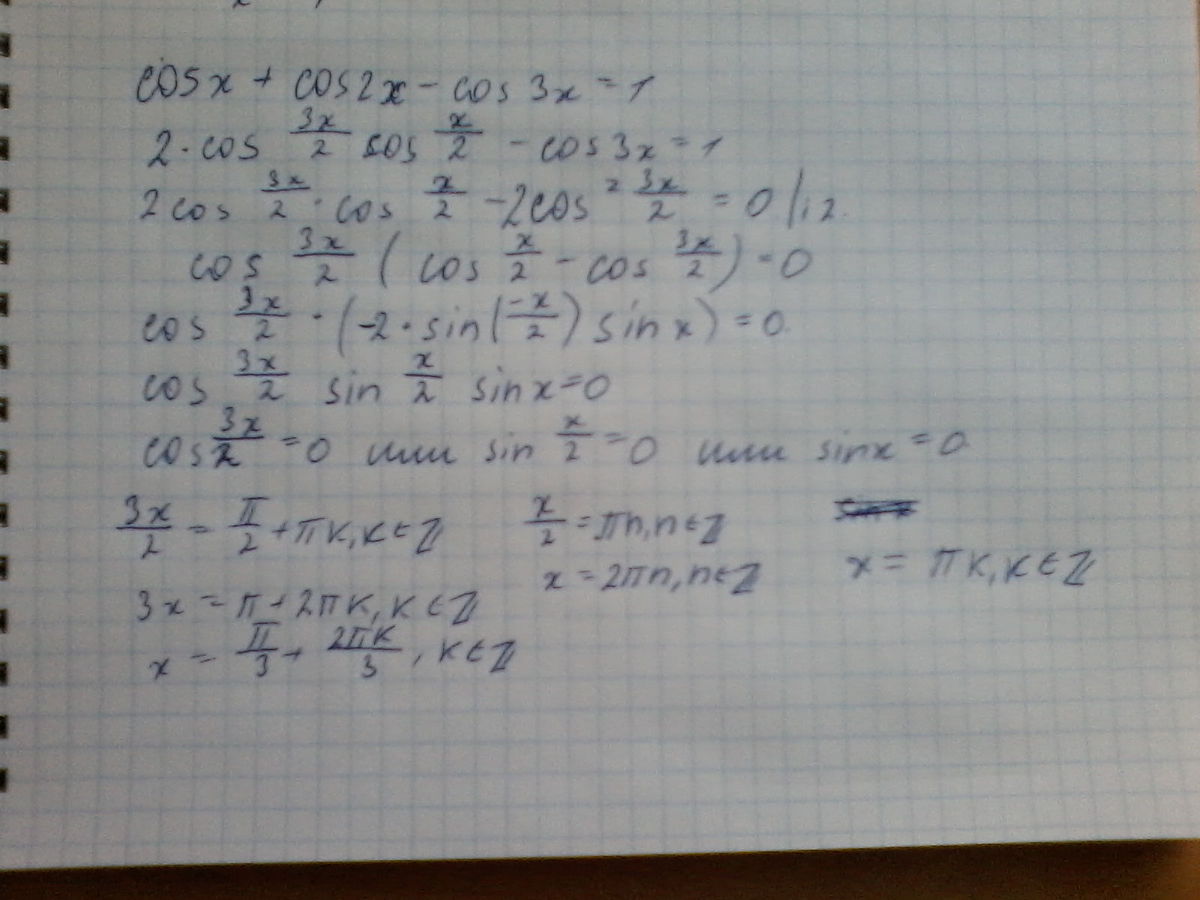 cosx + cos2x - cos 3x = 1
2 · cos 3x/2 cos x/2 - cos3x = 1
2 cos 3x/2 · cos x/2 - 2cos² 3x/2 = 0 |:2.
cos 3x/2 ( cos x/2 - cos 3x/2 ) = 0
cos 3x/2 · (-2 · sin(-x/2) sin x) = 0.
cos 3x/2 sin x/2 sin x = 0
cos 3x/2 = 0 или sin x/2 = 0 или sinx = 0
3x/2 = π/2 + πk, k ∈ Z x/2 = πn, n ∈ Z
3x = π + 2πk, k ∈ Z x = 2πn, n ∈ Z x = πk, k ∈ Z
x = π/3 + 2πk/3, k ∈ Z